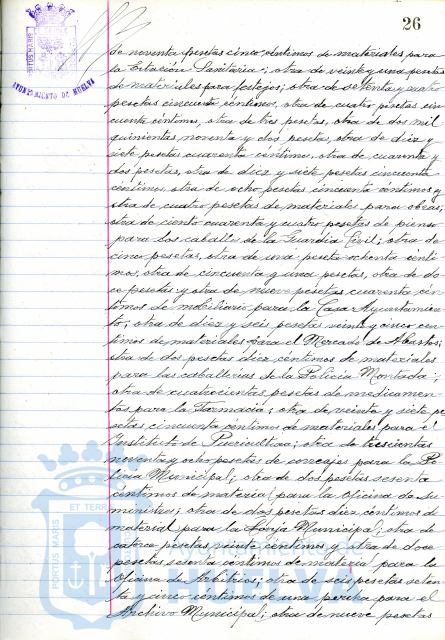 26
PORTUS MARIS
AYUNTAMIENTO DE HUELVA
de noventa pesetas cinco céntimos de materiales para
la Estación Sanitaria; otra de veinte y una pesetas
de materiales para festejos; otra de setenta y cuatro
pesetas cincuenta céntimos, otra de cuatro pesetas cin
cuenta céntimos, otra de tres pesetas, otra de dos mil
quinientas noventa y dos pesetas, otra de diez y
siete pesetas cuarenta céntimos, otra de cuarenta y
dos pesetas, otra de diez y siete pesetas cincuenta
céntimos, otra de ocho pesetas cincuenta céntimos y
otra de cuatro pesetas de materiales para obras;
otra de ciento cuarenta y cuatro pesetas de pienso
para los caballos de la Guardia Civil; otra de
cinco pesetas, otra de una peseta ochenta cénti
mos, otra de cincuenta y una pesetas, otra de do
ce pesetas y otra de nueve pesetas cuarenta cén
timos de mobiliario para la Casa Ayuntamien
to; otra de diez y seis pesetas veinte y cinco cén
timos de materiales para el Mercado de Abastos;
otra de dos pesetas diez céntimos de materiales
para las caballerías de la Policía Montada;
otra de cuatrocientas pesetas de medicamen
tos para la Farmacia; otra de veinte y siete pe
setas cincuenta céntimos de materiales para el
Instituto de Puericultura; otra de trescientas
noventa y ocho pesetas de correajes para la Po
licía Municipal; otra de dos pesetas sesenta
céntimos de material para la Oficina de Su
ministros; otra de dos pesetas diez céntimos de
material para la Lonja Municipal; otra de
catorce pesetas veinte céntimos y otra de doce
pesetas sesenta céntimos de material para la
Oficina de Arbitrios; otra de seis pesetas seten
ta y cinco céntimos de una percha para el
Archivo Municipal; otra de nueve pesetas
ET TERRAE
PORTUS MARIS
Ayuntamiento de
HUELVA